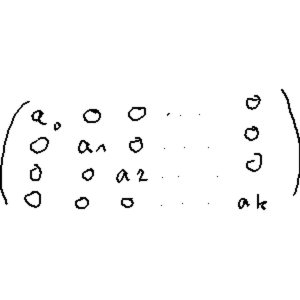 a₀ 0 0 . . . 0
0 a1 0 . . . 0
0 0 a2 . . . 0
0 0 0 . . . ak